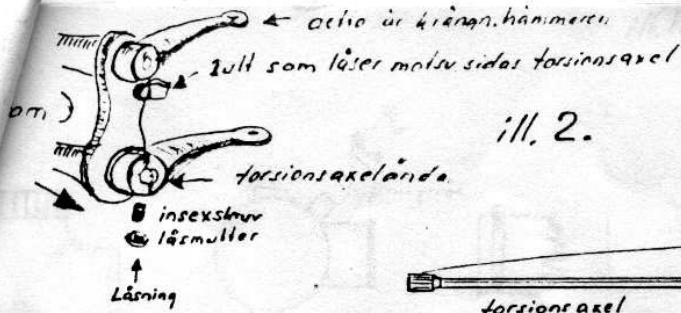 är krängn.hämmaren
Bult som låser motsv. sidas torsionsaxel
om)
ill. 2.
torsionsaxelända
insexskruv
låsmutter
Låsning
torsionsaxel